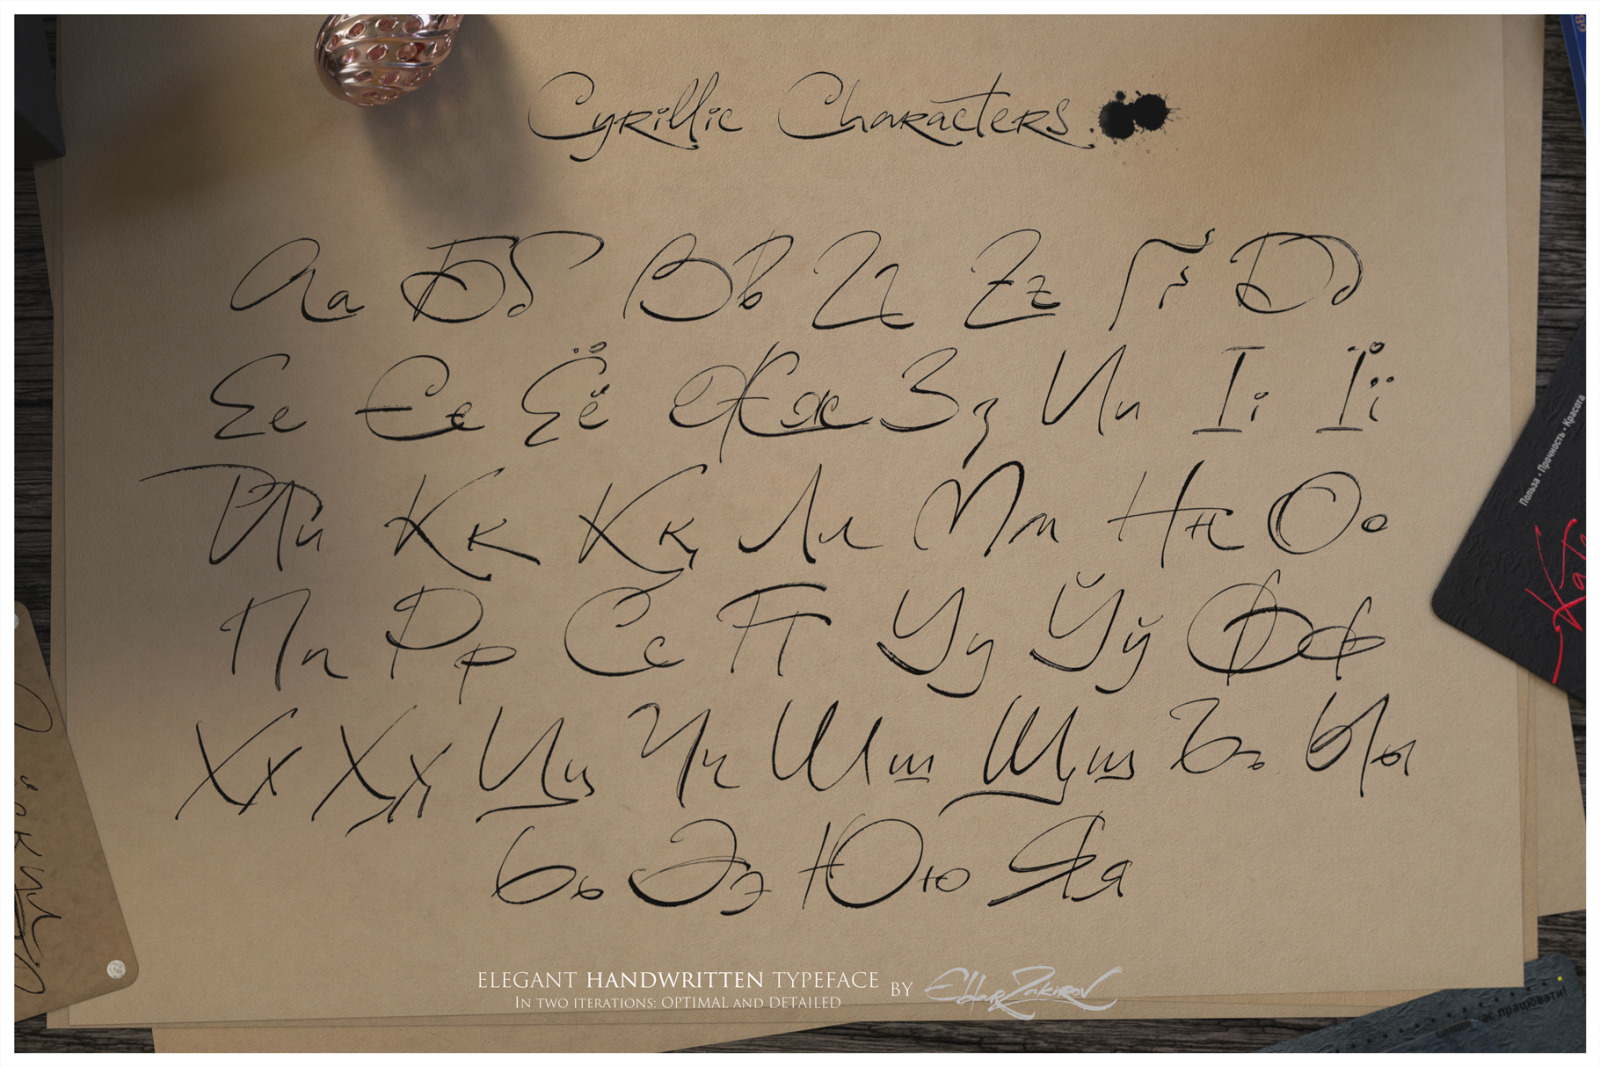 Cyrillic Characters.
Аа Бб Вв Гг Ғғ Ґґ Дд
Ее Єє Ёё Жж Зз Ии Іі Її
Йй Кк Ққ Лл Мм Нн Оо
Пп Рр Сс Тт Уу Ўў Фф
Хх Ҳҳ Цц Чч Шш Щщ Ъъ Ыы
Ьь Ээ Юю Яя
Польза • Прочность • Красота
ELEGANT HANDWRITTEN TYPEFACE
IN TWO ITERATIONS: OPTIMAL AND DETAILED
BY Eldar Zakirov
працювати!